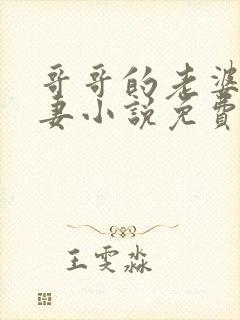 哥哥的老婆
妻小说免費
王雯淼